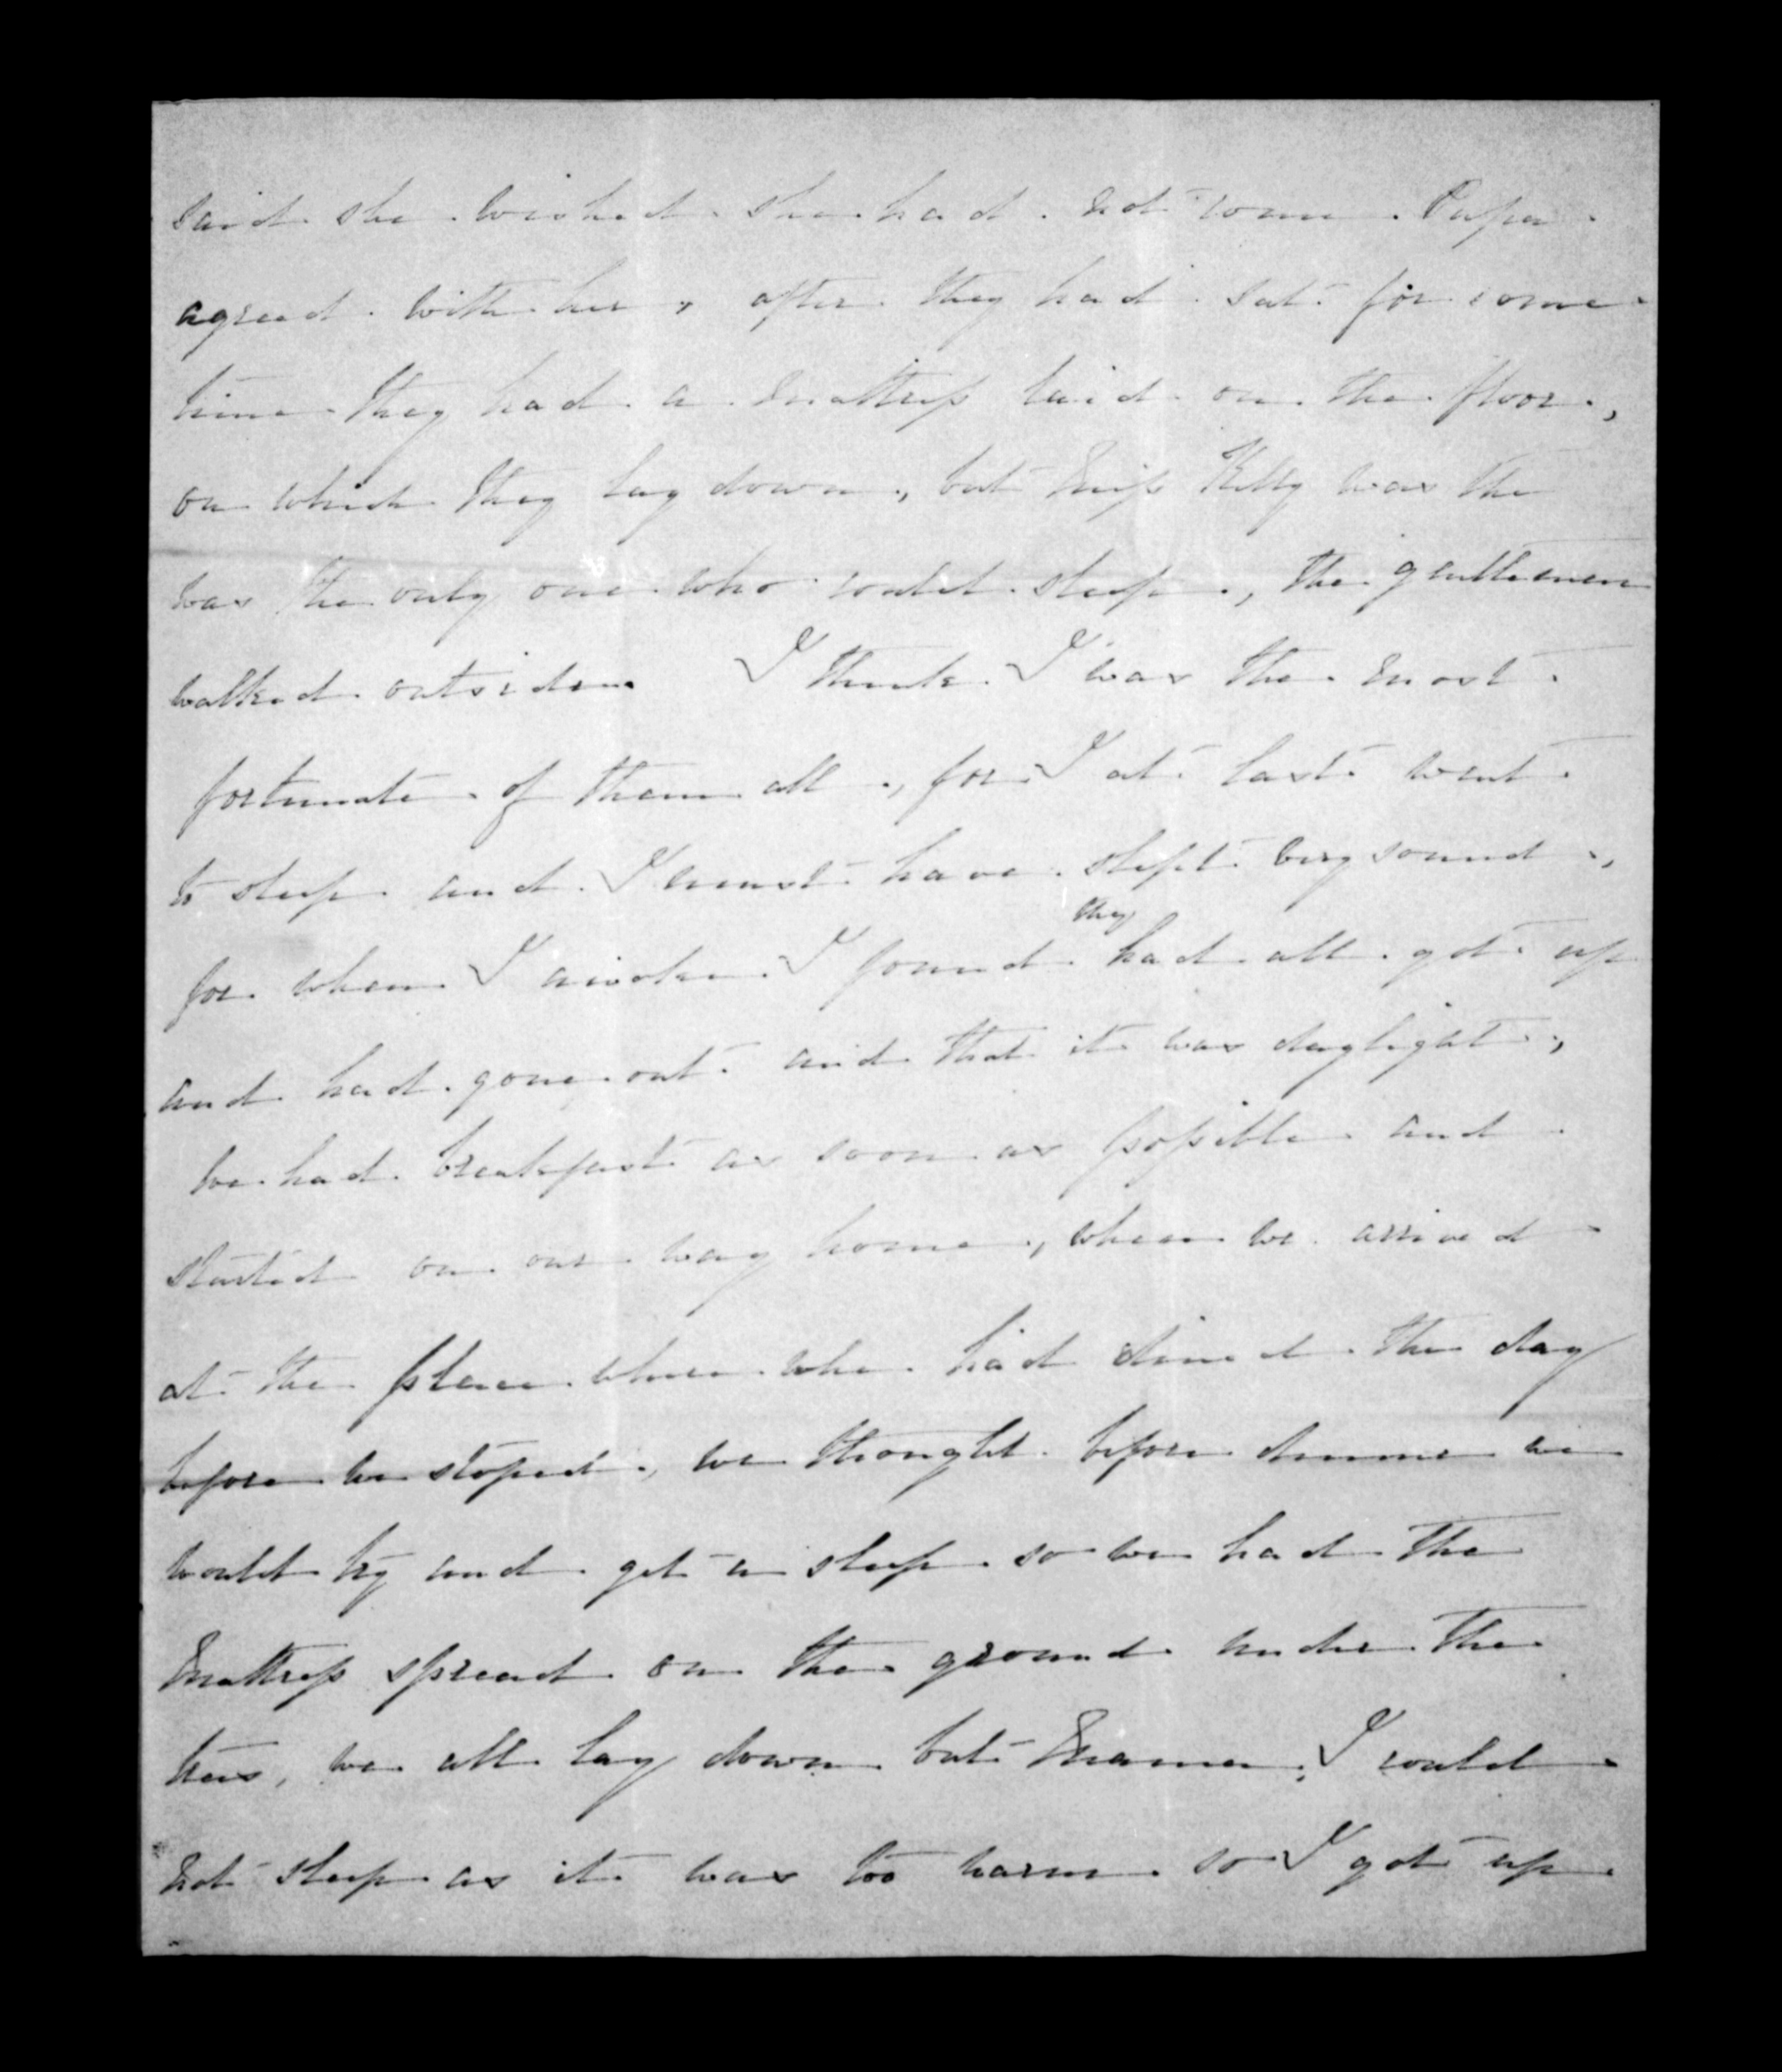 said she wished she had not come. Papa
agreed with her, after they had sat for some
time they had a mattress laid on the floor,
on which they lay down, but Miss Kelly was the
was the only one who could sleep, the gentlemen
walked outside. I think I was the most
fortunate of them all, for I at last went
to sleep and I must have slept very sound,
for when I awoke I found they had all got up
and had gone out and that it was daylight,
we had breakfast as soon as possible and
started on our way home, when we arrived
at the place where whe had dined the day
before we stoped, we thought before dinner we
would try and get a sleep so we had the
mattress spread on the ground under the
trees, we all lay down but Mama, I could
not sleep as it was too warm so I got up